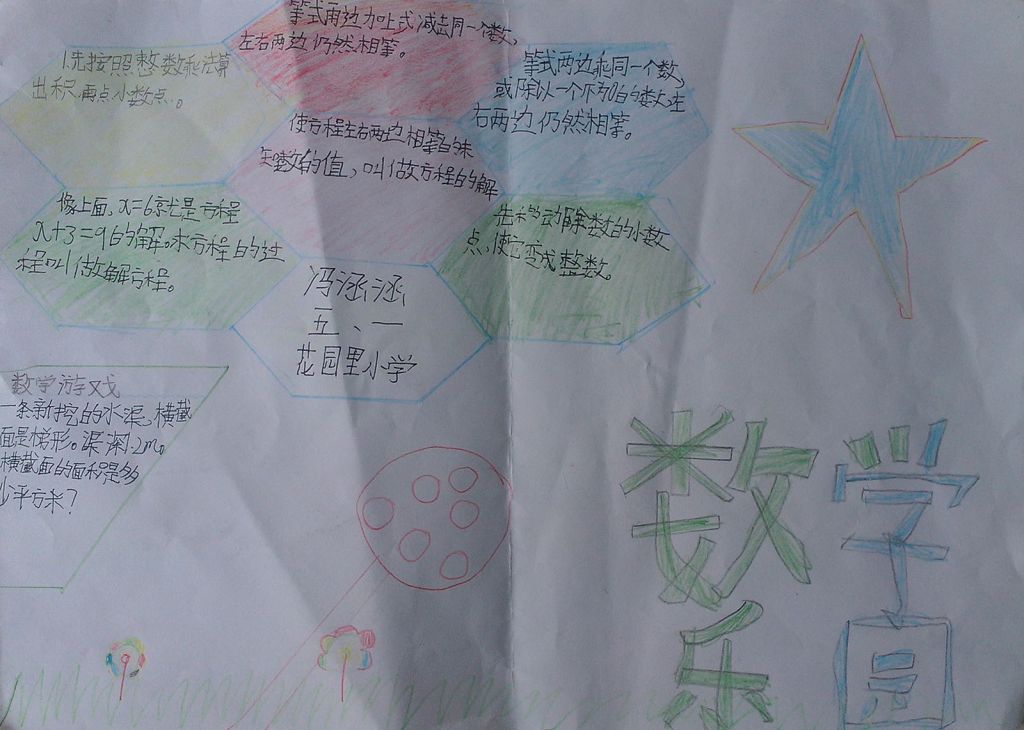 等式两边加上或减去同一个数,
左右两边仍然相等。
1.先按照整数乘法算
出积,再点小数点。
等式两边乘同一个数,
或除以一个不为0的数,左
右两边仍然相等。
使方程左右两边相等的未
知数的值,叫做方程的解
像上面,x=6就是方程
x+3=9的解。求方程的过
程叫做解方程。
先移动除数的小数
点,使它变成整数。
冯涵涵
五、一
花园里小学
数学游戏
一条新挖的水渠,横截
面是梯形。渠深2m。
横截面的面积是多
少平方米?
数学
乐园